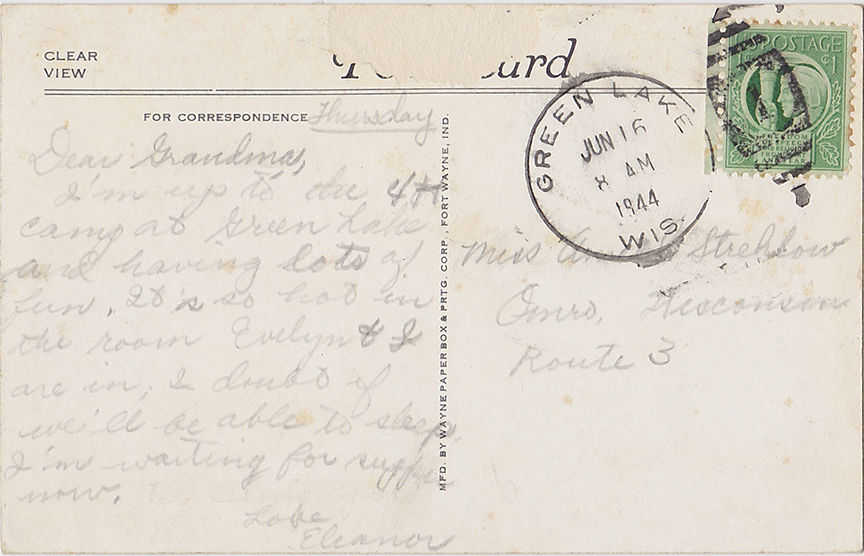 CLEAR
VIEW
FOR CORRESPONDENCE
Thursday
Dear Grandma,
I'm up to the 4H
camp at Green Lake
and having lots of
fun. It's so hot in
the room Evelyn & I
are in, I doubt if
we'll be able to sleep.
I'm waiting for supper
now.
Love
Eleanor
MFD. BY WAYNE PAPER BOX & PRTG. CORP., FORT WAYNE, IND.
GREEN LAKE
JUN 16
8 AM
1944
WIS.
POSTAGE
¢1
Miss Strehlow
Omro, Wisconsin
Route 3